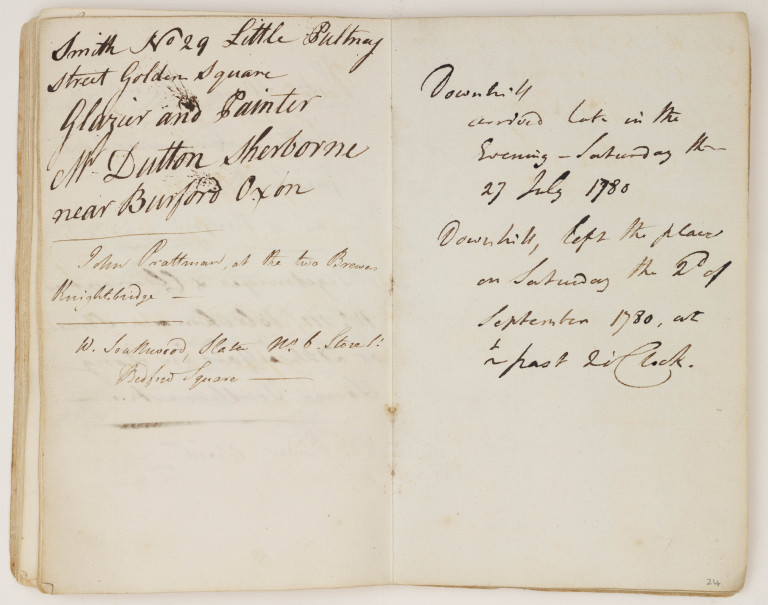 Smith No 29 Little Pultney
street Golden Square
Glazier and Painter
Mr Dutton Sherborne
near Burford Oxon
John Prattman, at the two Brewers
Knightsbridge —
W. Southwood, Slater No. 6. Store St.
Bedford Square —
Downhill
arrived late in the
Evening – Saturday the
27 July 1780
Downhill, left the place
on Saturday the 2d of
September 1780, at
½ past 2 o'Clock.
24